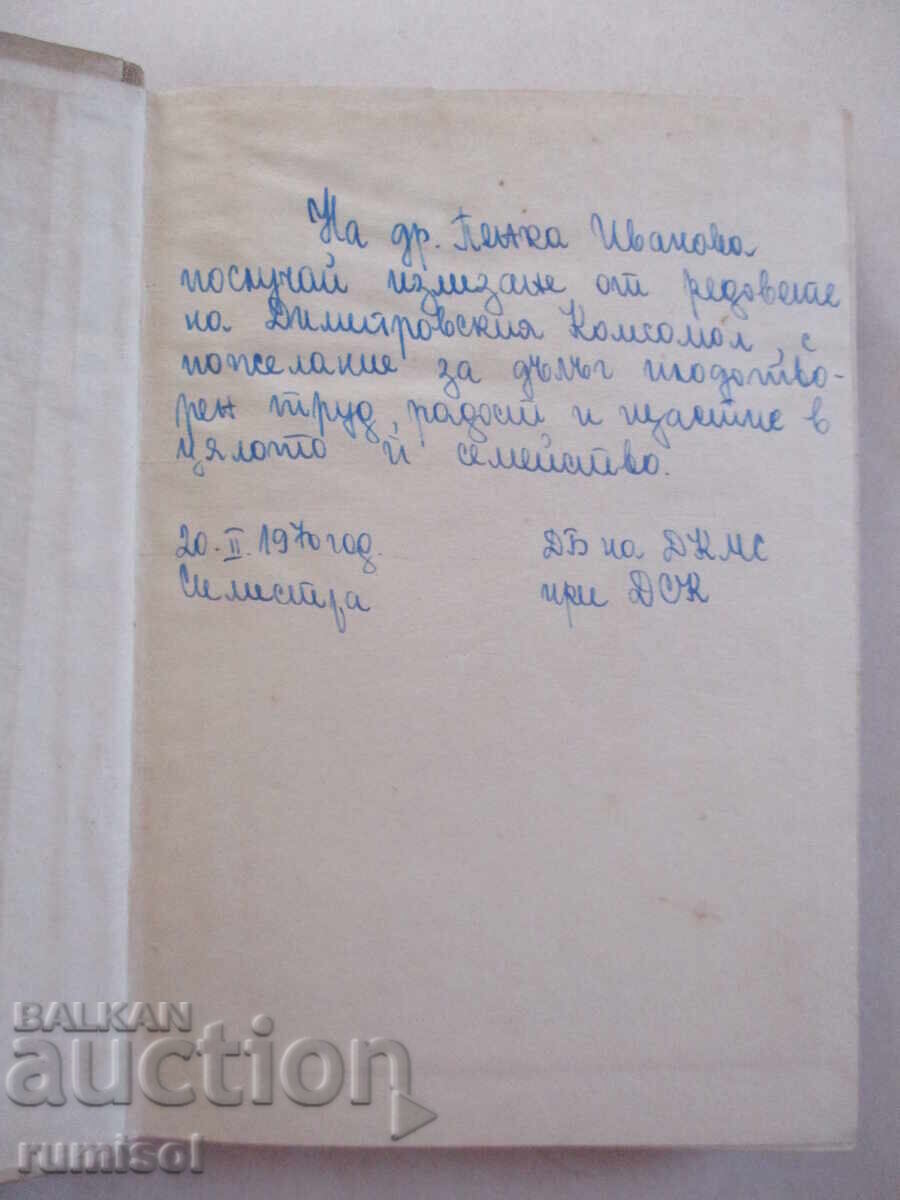 На др. Пенка Иванова
послучай излизане от редовете
на Димитровския Комсомол, с
пожелание за дълъг плодотво-
рен труд, радост и щастие в
цялото ѝ семейство.
20. II. 1970 год.
Силистра
ДБ на ДКМС
при ДСК
BALKAN
auction
rumisol